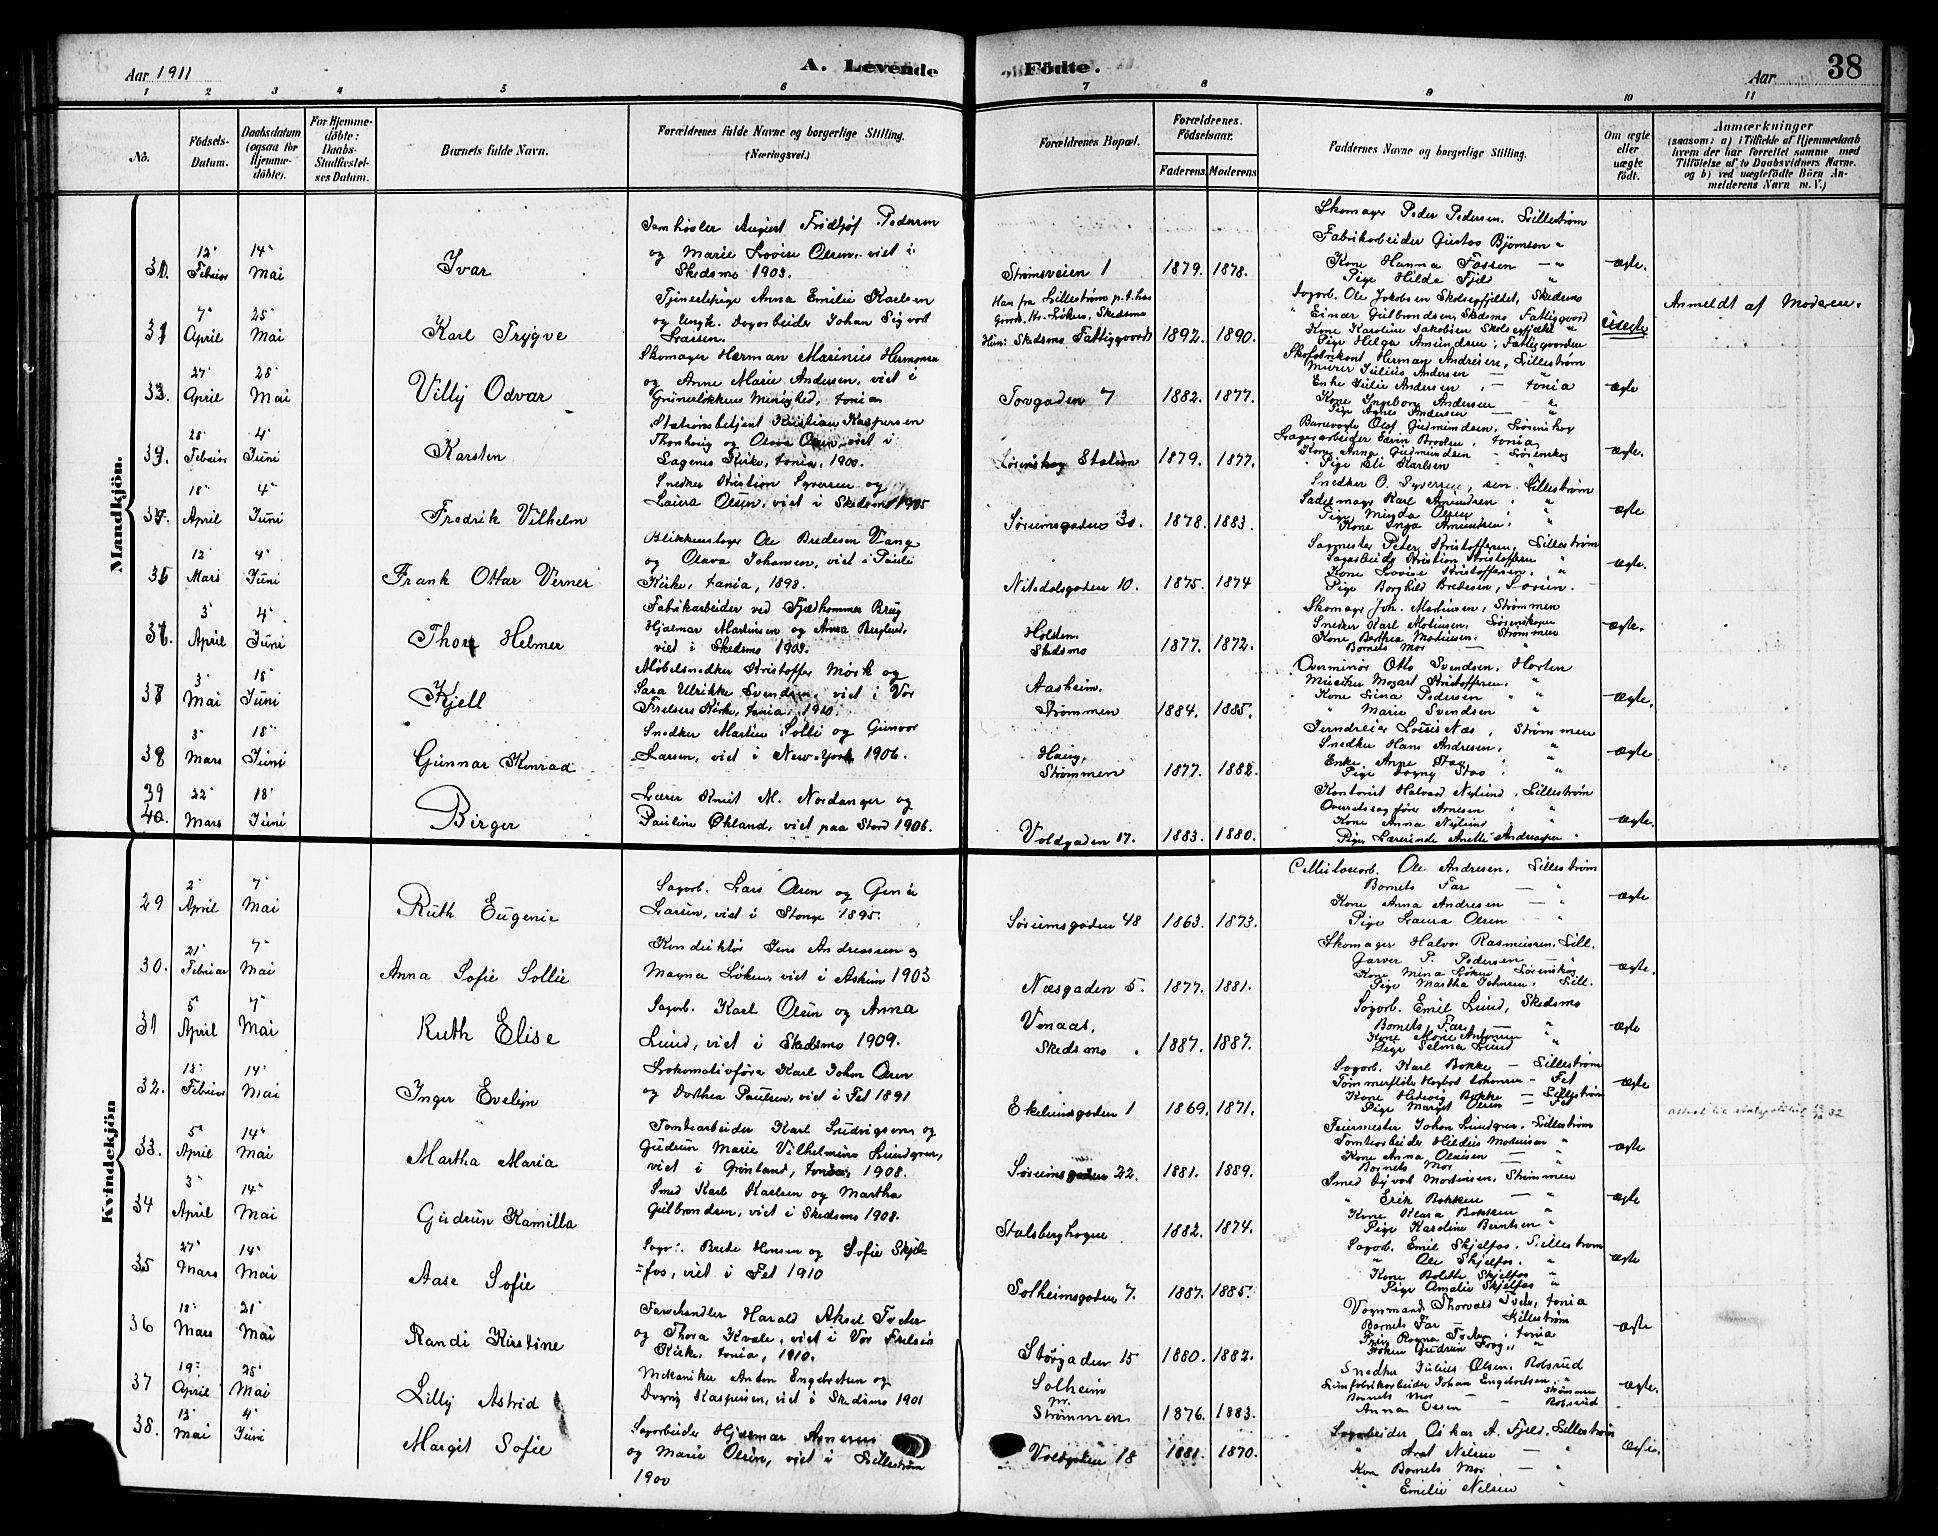 Aar 1911
A. Levende Födte.
Aar
38
1 2 3 4 5 6 7 8 9 10 11
No.
Födsels-Datum.
Daabsdatum (ogsaa for Hjemme-döbte).
For Hjemme-döbte: Daabs-Stadfæstel-ses Datum.
Barnets fulde Navn.
Forældrenes fulde Navne og borgerlige Stilling. (Næringsvei.)
Forældrenes Bopæl.
Forældrenes Födselsaar.
Faderens. Moderens
Faddernes Navne og borgerlige Stilling.
Om ægte eller uægte födt.
Anmærkninger
(saasom: a) i Tilfælde af Hjemmedaab
hvem der har forrettet samme med
Tilföielse af to Daabsvidners Navne.
og b) ved uægtefödte Börn An-
melderens Navn m. V.)
Mandkjön.
12 Februar 14 Mai
Ivar
August Fridtjof Pedersen
og Marie Lovise Olsen, viet i
Skedsmo 1903.
Strømsveien 1
1879. 1878.
Skomager Peder Pedersen, Lillestrøm
Fabrikarbeider Gustav Bjørnsen "
Kone Hanna Fossen — "
Pige Hilda Fjeld "
ægte.
7 April 25 Mai
Karl Trygve
Tjenestepige Anna Emilie Karlsen
og Ungk. Dagarbeider Johan Sigvart
Larsen.
Han fra Lillestrøm p.t. hos
Skedsmo Fattiggaard
1892. 1890.
Sagarb. Ole Jakobsen Skedsmo
" Einar Gulbrandsen, Skedsmo Fattiggaard
Kone Karoline Jakobsen
Pige Helga Amundsen, Fattiggaarden
uægte
Anmeldt af Moderen.
33. 27 April 28 Mai
Villy Odvar
Skomager Herman Marinius Hermansen
og Anne Marie Andersen, viet i
Grünerløkkens Menighed, Xania
Torvgaden 7
1882. 1877.
Skofabrikant Herman Andresen, Lillestrøm
Murer Julius Andersen — "
Enke Julie Andersen, — Xania
Kone Ingeborg Andersen — "
Pige Agnes Andersen — "
ægte
28 Februar 4 Juni
Karsten
Stationsbetjent Kristian Kaspersen
og Olava Olsen, viet i
Kirke, Xania, 1900.
Lørenskog Station
1879. 1877.
Banevogte Olaf Gudmundsen, Lørenskog
Lagerarbeider Edvin Brodsen, Xania
Kone Anna Gudmundsen — Lørenskog
Pige Eli Karlsen "
ægte.
18 April 4 Juni
Fredrik Vilhelm
Snedker Kristian Syversen og
Laura Olsen, viet i Skedsmo 1905
Sørumsgaden 30.
1878. 1883.
Snedker O. Syversen, sen. Lillestrøm
Sadelmager Karl Amundsen, "
Pige Minda Olsen "
Kone Inga Amundsen, "
ægte
12 Mars 4 Juni
Frank Ottar Verner
Blikkenslager Ole Bredesen Vang
og Olava Johansen, viet i Pauli
Kirke, Xania, 1898.
Nitedalsgaden 10.
1875. 1874
Sagmester Peter Kristoffersen, Lillestrøm
Sagarbeider Kristian Kristoffersen "
Kone Lovise Kristoffersen, "
Pige Borghild Bredesen,
ægte.
3 April 4 Juni
Thor Helmer
Fabrikarbeider ved Fjeldhammer Brug
Hjalmar Martinsen og Anna Berglund,
viet i Skedsmo 1903.
Holden. Skedsmo
1877. 1872.
Skomager Joh. Martinsen, Strømmen
Snedker Karl Mathisen, Lørenskogen
Kone Berthea Mathisen. Strømmen
Barnets Mor — "
ægte.
3 Mai 18 Juni
Kjell
Møbelsnedker Kristoffer Mørk og
Sara Ulrikke Svendsen, viet i Vor
Frelsers Kirke, Xania, 1910.
Aasheim. Strømmen
1884. 1885.
Overminør Otto Svendsen, Horten
Musiker Mozart Kristoffersen, "
Kone Lina Pedersen "
" Marie Svendsen "
ægte.
5 Mars 18 Juni
Gunnar Konrad
Snedker Martin Solli og Gunvor
Larsen, viet i New-York 1906.
Haug, Strømmen
1877. 1882.
Jerndreier Louis Næs, Strømmen
Snedker Hans Andresen, "
Enke Anne Stas "
Pige Dagny Stas "
ægte
39
40. 22 Mars 18 Juni
Birger
Lærer Knut M. Nordanger og
Pauline Økland, viet paa Stord 1906.
Voldgaden 17.
1883. 1880.
Kontorist Halvard Nylund, Lillestrøm
Overretssagfører Arnesen "
Kone Anna Nylund "
Pige, Lærerinde Anette Andreassen "
ægte.
Kvindekjön
29 2 April 7 Mai
Ruth Eugenie
Sagarb. Lars Olsen og Gina
Larsen, viet i Stange 1895.
Sørumsgaden 48
1863. 1873.
Cellulosearb. Ole Andresen, Lillestrøm
Barnets Far — "
Kone Anna Andresen — "
Pige Laura Olsen — "
ægte
30. 21 Februar 7 Mai
Anna Sofie Sollie
Konduktør Jens Andreassen og
Magna Løken, viet i Askim 1903
Næsgaden 5.
1877. 1881.
Skomager Halvor Rasmussen, Lill.
Garver P. Pedersen — "
Kone Mina Løken Lørenskog
Pige Martha Johnsen, Lill.
ægte.
31 5 April 7 Mai
Ruth Elise
Sagarb. Karl Olsen og Anna
Lund, viet i Skedsmo 1909.
Venaas, Skedsmo
1887. 1887.
Sagarb. Emil Lund, Skedsmo
Barnets Far — "
Kone Marie Antonsen "
Pige Selma Lund "
ægte
32. 13 Februar 14 Mai
Inger Evelyn
Lokomotivfører Karl Johan Olsen
og Dorthea Paulsen, viet i Fet 1891
Ekelundsgaden 1
1869. 1871.
Sagarb. Karl Bakke — Lillestrøm
Tømmerfløter Hagbart Johansen — Fet
Kone Hedevig Bakke — Lillestrøm
Pige Margit Olsen — Fet
ægte
33. 5 April 14 Mai
Martha Maria
Tomtearbeider Karl Ludvigsen og
Gudrun Marie Vilhelmine Lundgren,
viet i Grønland, Xania, 1908.
Sørumsgaden 22.
1881. 1889.
Feiermester Johan Lundgren, Lillestrøm
Tomtearbeider Hildus Madsen "
Kone Anna Olausen — "
Barnets Mor — "
ægte
34 3 April 14 Mai
Gudrun Kamilla
Smed Karl Karlsen og Martha
Gulbrandsen, viet i Skedsmo 1908.
Stalsberghagen
1882. 1874.
Smed Sigvart Mortensen, Strømmen
" Erik Bakken — "
Kone Klara Bakken — "
Pige Karoline Berntsen "
ægte
35 27 Mars 14 Mai
Aase Sofie
Sagarb. Brede Hansen og Sofie Skjel-
=fos, viet i Fet 1910
Solheimsgaden 7.
1887. 1885.
Sagarb. Emil Skjelfos, Lillestrøm
" Ole Skjelfos, "
Kone Bolette Skjelfos "
Pige Amalie Skjelfos "
ægte
36 18 Mars 21 Mai
Randi Kirstine
Farvehandler Harald Aksel Tveter
og Thora Kvale, viet i Vor Frelsers
Kirke, Xania, 1910.
Storgaden 15
1880. 1882.
Vognmand Thorvald Tveter, Xania
Barnets Far — Lillestrøm
Fru Ragna Tveter, Xania
Frøken Gudrun "
ægte
37 19 April 25 Mai
Lilly Astrid
Mekaniker Anton Engebretsen og
Dagny Kaspersen, viet i Skedsmo 1901
Solheim pr. Strømmen
1876. 1883.
Snedker Julius Olsen, Robsrud
Limfabrikarbeider Johan Engebretsen, "
Barnets Mor — Strømmen
Anna Olsen — Robsrud
ægte.
38. 13 Mai 4 Juni
Margit Sofie
Sagarbeider Hjalmar
og Marie Olsen, viet i Lillestrøm
1900
Voldgaden 18
1881. 1870.
Sagarbeider Oskar A. Fjeld, Lillestrøm
" Nilsen — "
Kone Barnets Mor — "
" Emilie Nilsen "
ægte.